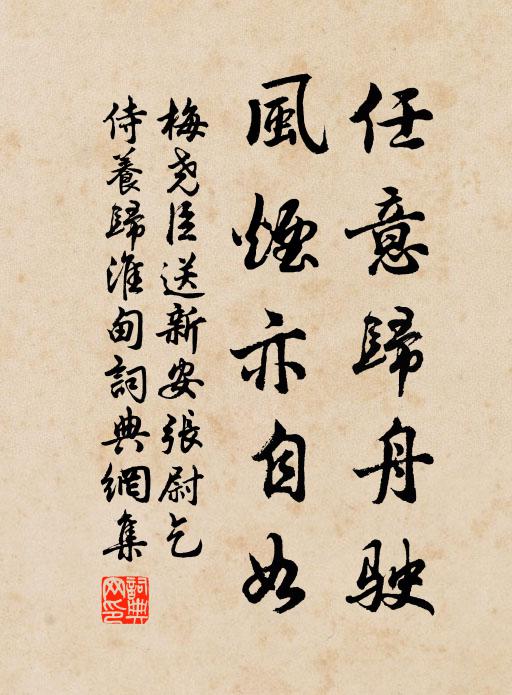 任意歸舟駛
風煙亦自如
梅堯臣送新安張尉乞
侍養歸淮甸詞典網集
詞典網印